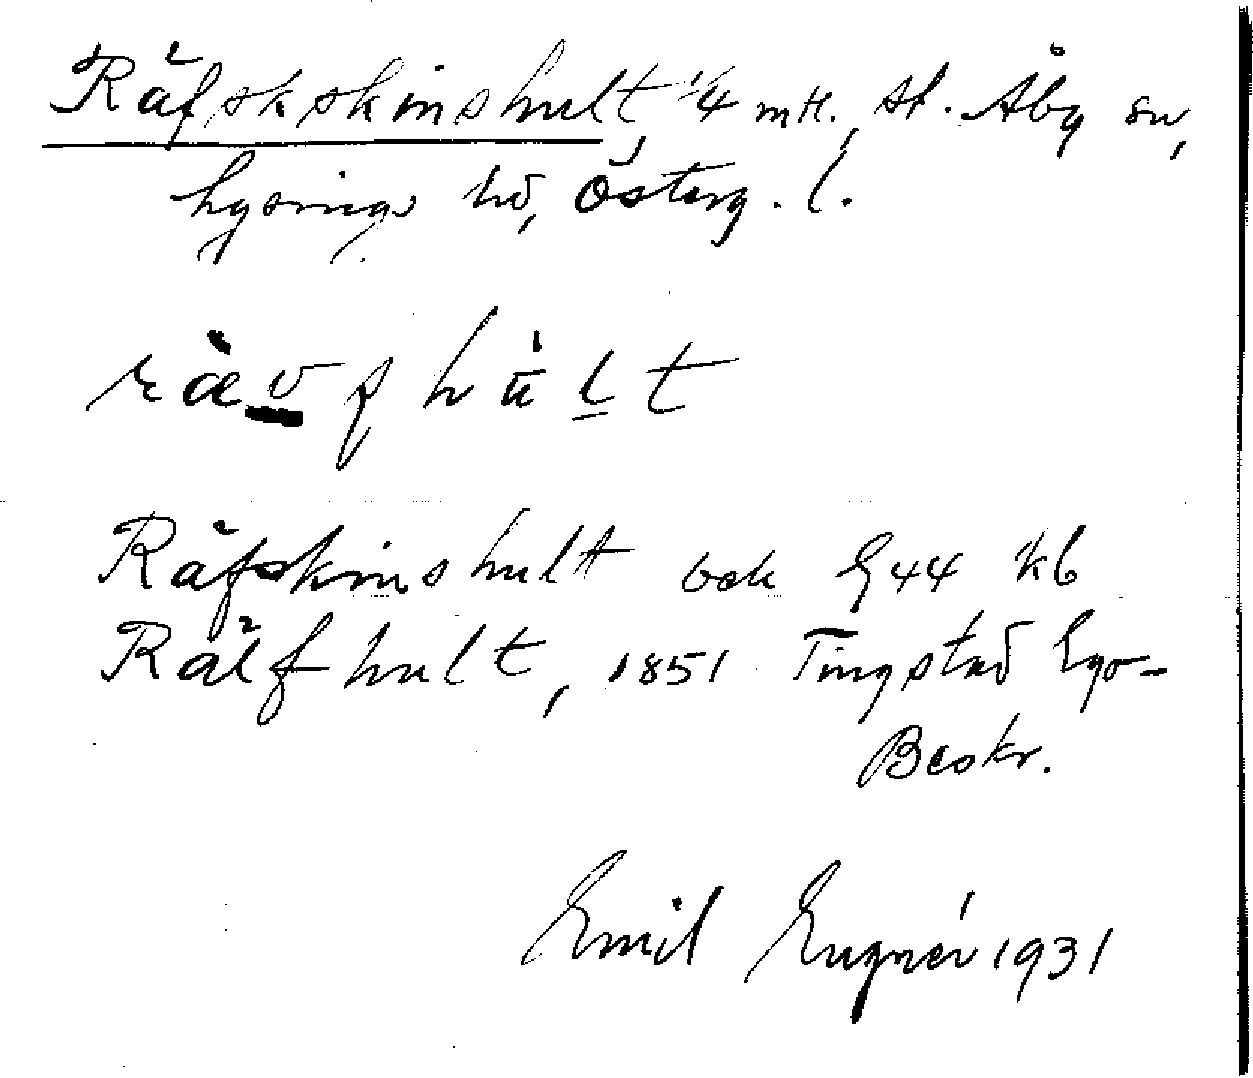 Räfskskinshult, 1/4 mtl., St. Åby sn,
Lysings hd, Österg. l.
ræ̀vshu̇lt
Räfskinshult och E44 kb
Rälfhult, 1851 Tingstad Ego-
Beskr.
Emil Eugnér 1931